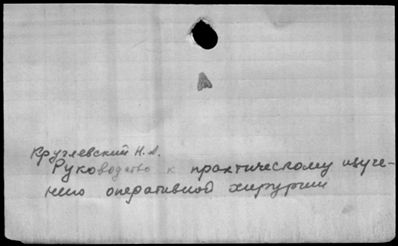 Круглевский Н.А.
Руководство к практическому изуче-
нию оперативной хирургии